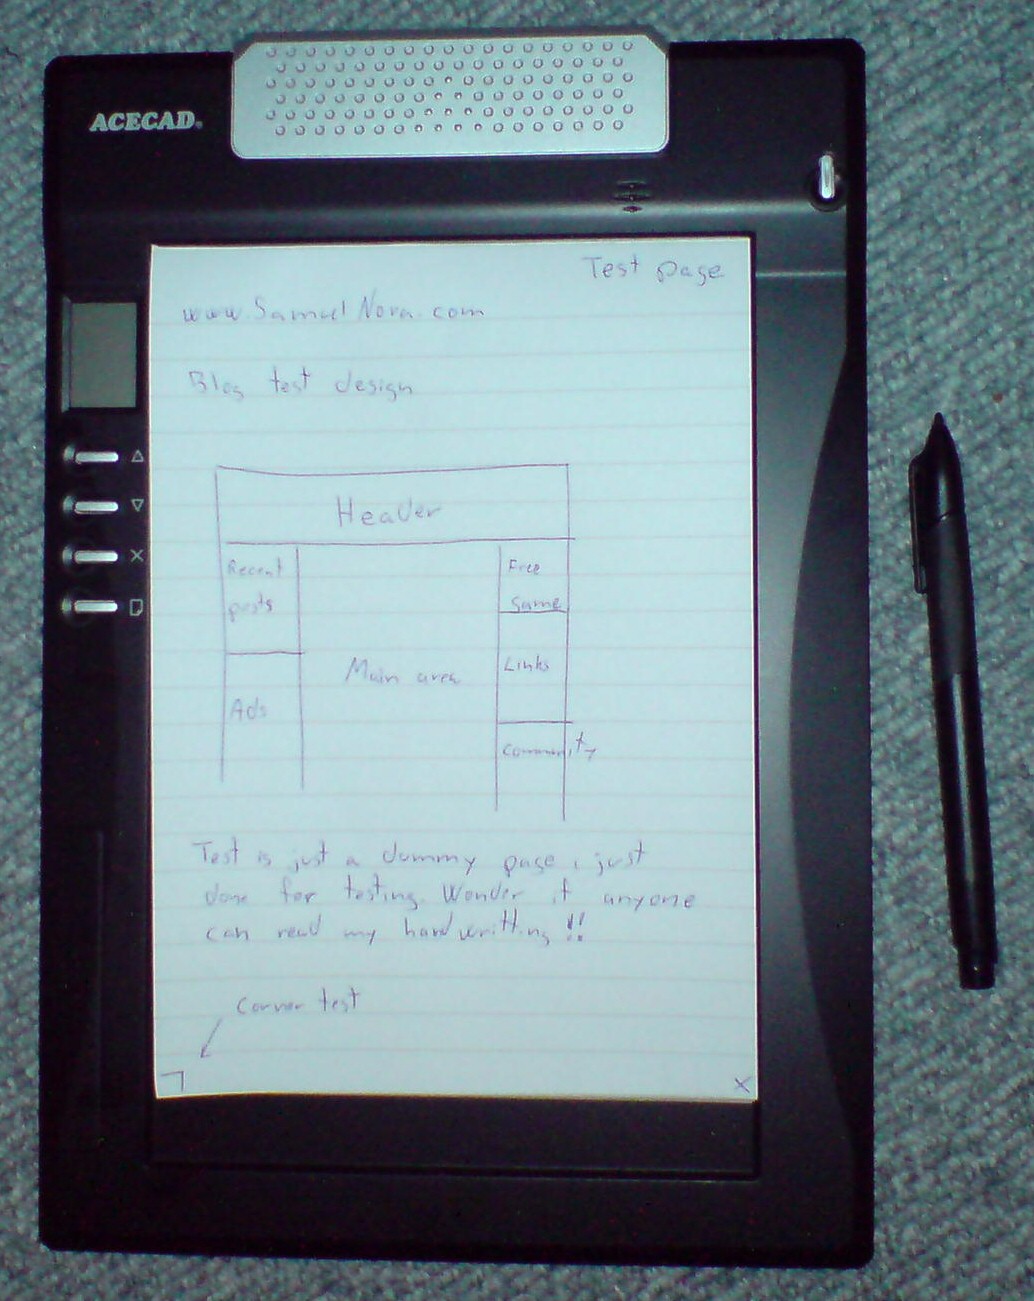 ACECAD
Test page
www.SamuelNova.com
Blog test design
Header
Recent
posts
Ads
Main area
Free
game
Links
Community
Test is just a dummy page, just
done for testing. Wonder if anyone
can read my handwritting!!
Corner test